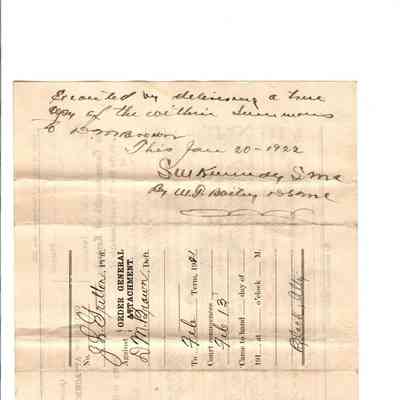 Executed by delivering a true
copy of the within Summons
to D M Brown
This Jan 20 - 1922
By W. T. Bailey
No.
J L Pltff.
Against } ORDER GENERAL ATTACHMENT.
D M Brown, Deft.
To Feb Term, 191
Court commences
Feb 13
Came to hand day of
191 at o'clock M.
Atty